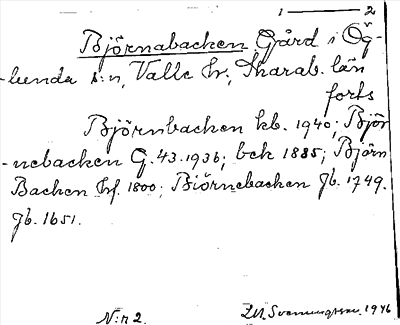 1 — 2
Björnabacken Gård i Ög-
-lunda s:n, Valle hr; Skarab. län
forts
Björnbacken kb. 1940; Björ
-nebacken G. 43. 1936; bck 1885; Björn
Backen hf. 1800; Biörnebacken Jb. 1749.
Jb. 1651.
N:r 2. 1946